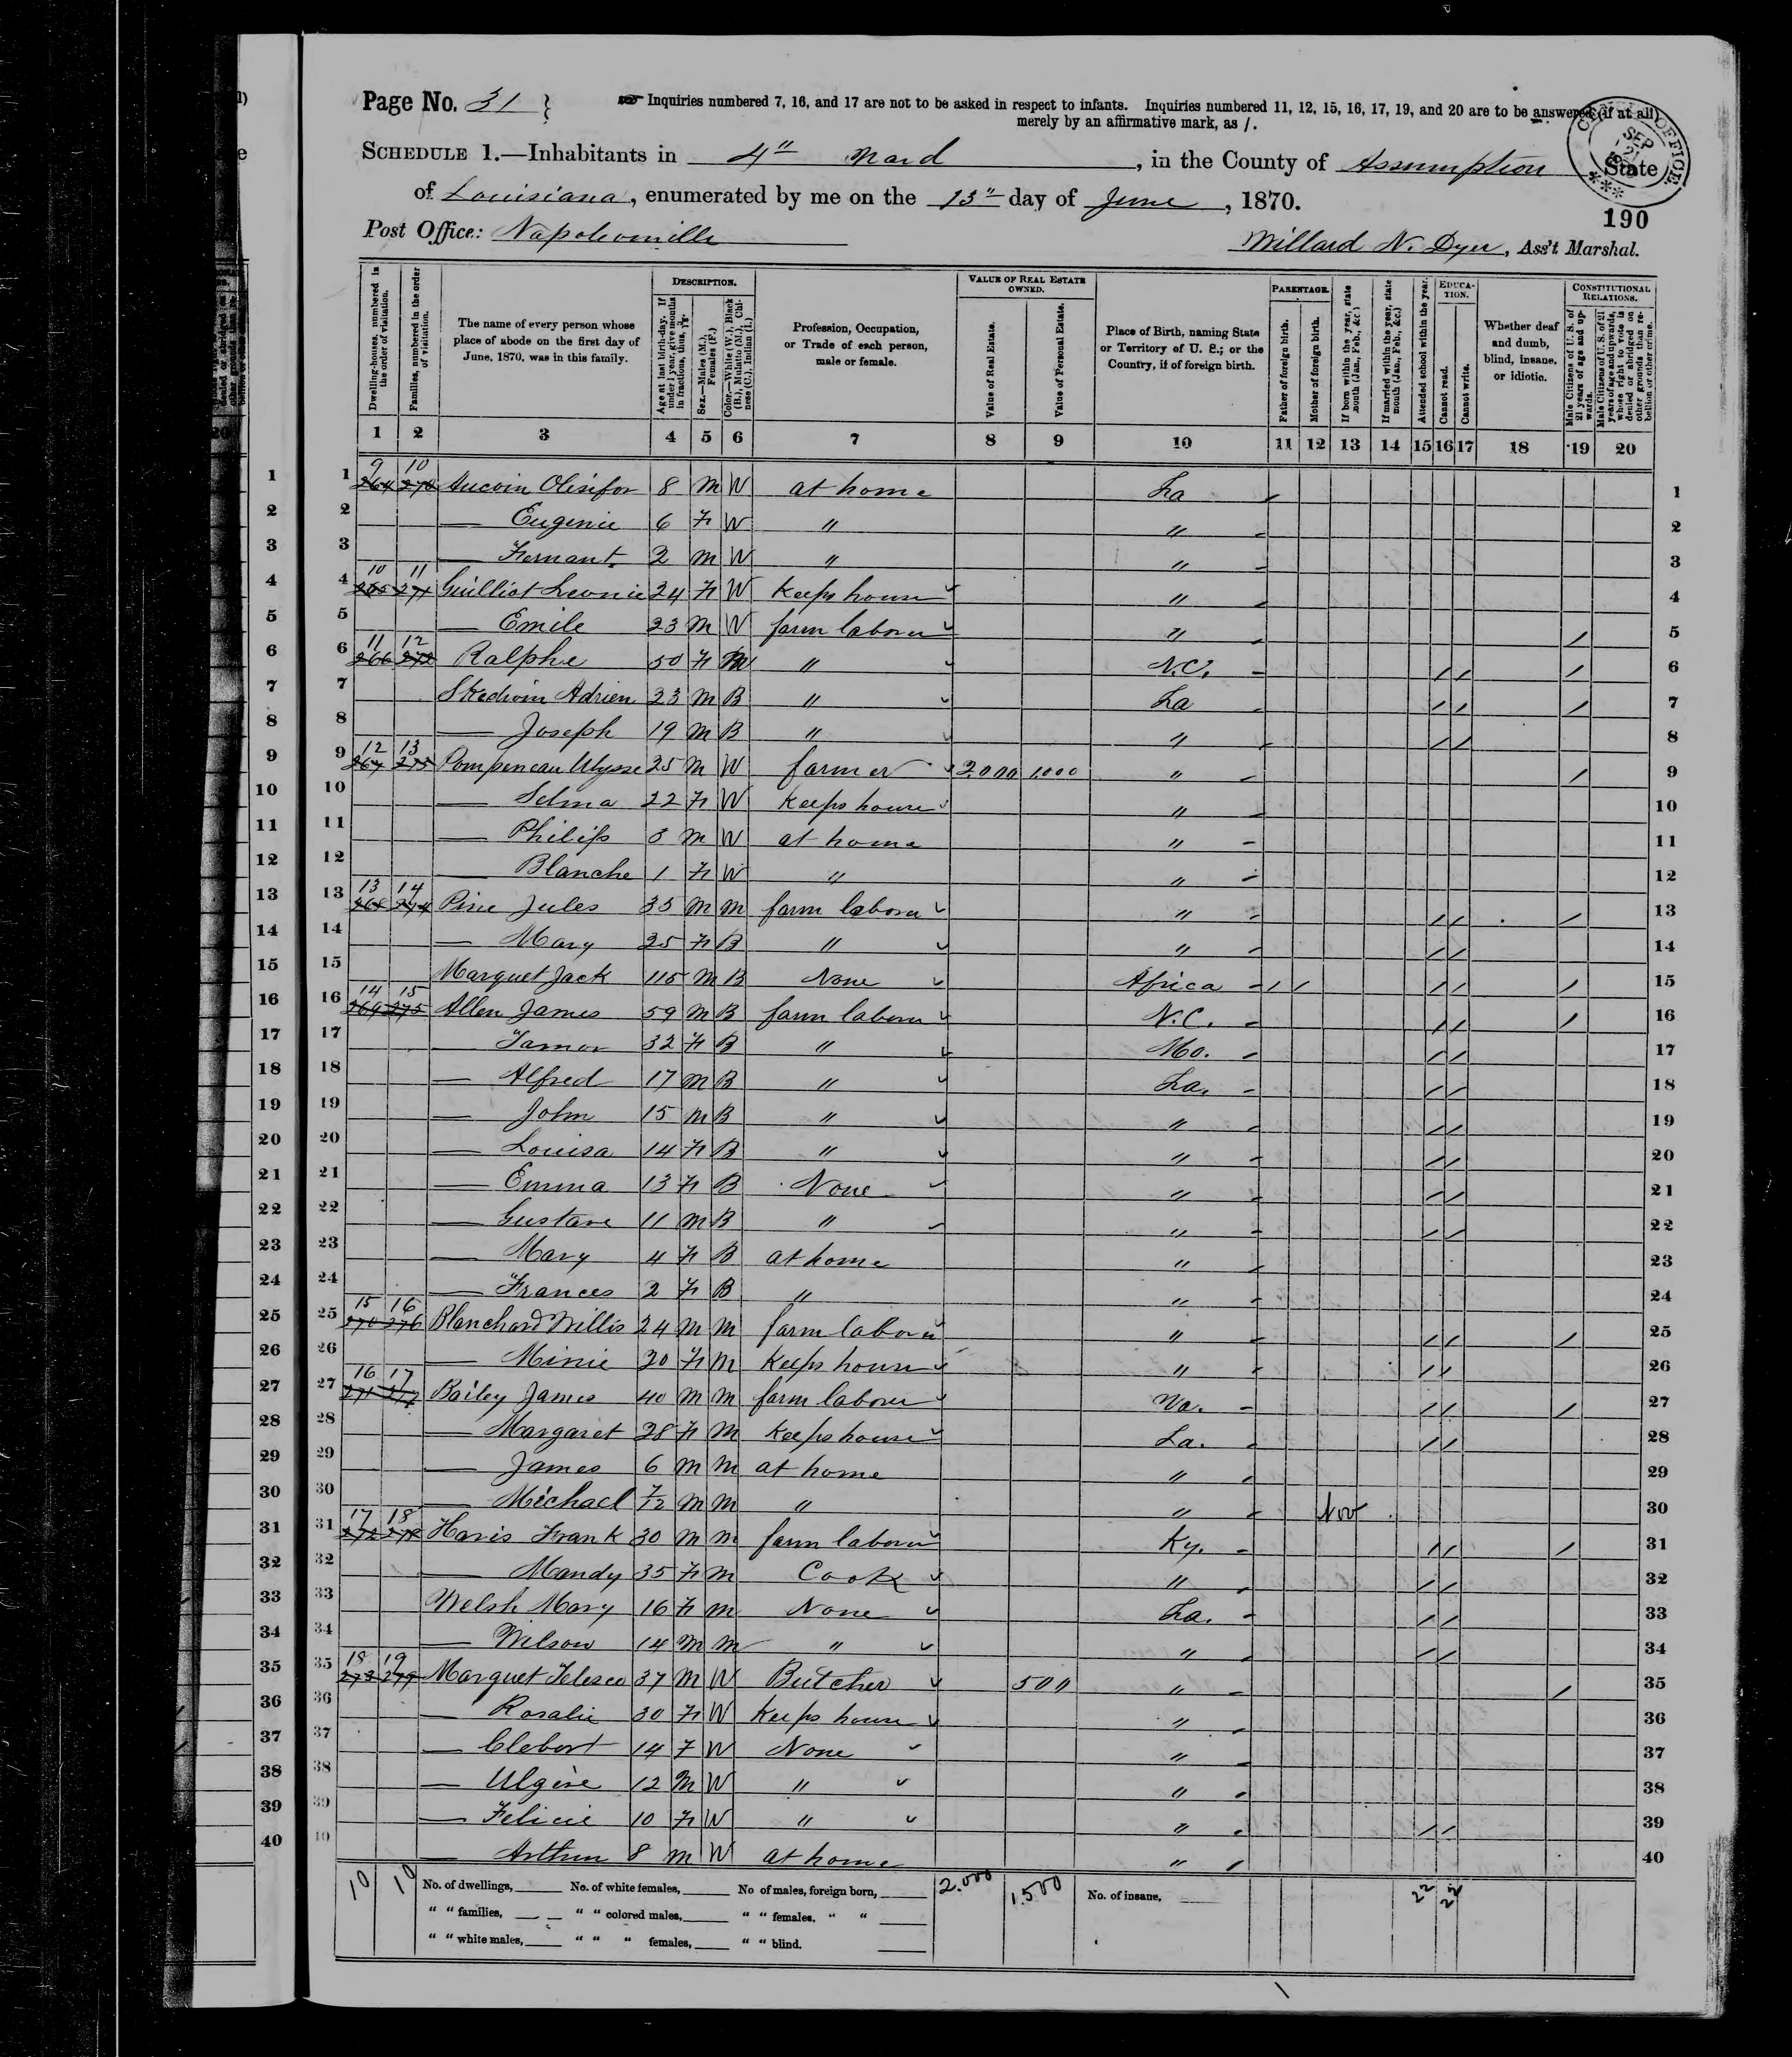 Page No. 31
Inquiries numbered 7, 16, and 17 are not to be asked in respect to infants. Inquiries numbered 11, 12, 15, 16, 17, 19, and 20 are to be answered (if at all)
merely by an affirmative mark, as /.
SCHEDULE 1.—Inhabitants in 4" Ward, in the County of Assumption State
of Louisiana, enumerated by me on the 13" day of June, 1870.
CENSUS OFFICE. SEP 21
190
Post Office: Napoleonville
Willard N. Dyer, Ass't Marshal.
Dwelling-houses, numbered in the order of visitation.
Families, numbered in the order of visitation.
The name of every person whose place of abode on the first day of June, 1870, was in this family.
DESCRIPTION.
Age at last birth-day. If under 1 year, give months in fractions, thus, 3/12.
Sex.—Males (M.), Females (F.)
Color.—White (W.), Black (B.), Mulatto (M.), Chinese (C.), Indian (I.)
Profession, Occupation, or Trade of each person, male or female.
VALUE OF REAL ESTATE OWNED.
Value of Real Estate.
Value of Personal Estate.
Place of Birth, naming State or Territory of U. S.; or the Country, if of foreign birth.
PARENTAGE.
Father of foreign birth.
Mother of foreign birth.
If born within the year, state month (Jan., Feb., &c.)
If married within the year, state month (Jan., Feb., &c.)
Attended school within the year.
EDUCATION.
Cannot read.
Cannot write.
Whether deaf and dumb, blind, insane, or idiotic.
CONSTITUTIONAL RELATIONS.
Male Citizens of U. S. of 21 years of age and upwards.
Male Citizens of U. S. of 21 years of age and upwards, whose right to vote is denied or abridged on other grounds than rebellion or other crime.
1 2 3 4 5 6 7 8 9 10 11 12 13 14 15 16 17 18 19 20
1 9 10 264 270 Aucoin Olésifor 8 M W at home La 1
2 — Eugenie 6 F W " " 2
3 — Fernant 2 M W " " 3
4 10 11 265 271 Guilliot Leonie 24 F W Keeps house " 4
5 — Emile 23 M W farm laborer " / 5
6 11 12 266 272 Ralphe 50 F M " N.C. / / / 6
7 Skedwin Adrien 23 M B " La / / / 7
8 — Joseph 19 M B " " / / 8
9 12 13 267 273 Pompeneau Ulysse 25 M W farmer 2.000 1000 " / 9
10 — Selma 22 F W Keeps house " 10
11 — Philip 3 M W at home " 11
12 — Blanche 1 F W " " 12
13 13 14 268 274 Pine Jules 35 M M farm laborer " / / / 13
14 — Mary 25 F B " " / / 14
15 Marquet Jack 115 M B None Africa / / / / / 15
16 14 15 269 275 Allen James 59 M B farm laborer N.C. / / / 16
17 — Tamor 32 F B " Mo. / / 17
18 — Alfred 17 M B " La. / / 18
19 — John 15 M B " " / / 19
20 — Louisa 14 F B " " / / 20
21 — Emma 13 F B None " / / 21
22 — Gustave 11 M B " " / / 22
23 — Mary 4 F B at home " 23
24 — Frances 2 F B " " 24
25 15 16 270 276 Blanchard Willis 24 M M farm laborer " / / / 25
26 — Minie 20 F M Keeps house " / / 26
27 16 17 271 277 Bailey James 40 M M farm laborer Va. / / / 27
28 — Margaret 28 F M Keeps house La. / / 28
29 — James 6 M M at home " 29
30 — Michael 7/12 M M " " Nov 30
31 17 18 272 278 Haris Frank 30 M M farm laborer Ky. / / / 31
32 — Mandy 35 F M Cook " / / 32
33 Welsh Mary 16 F M None La. / / 33
34 — Wilson 14 M M " " / / 34
35 18 19 273 279 Marquet Telesco 37 M W Butcher 500 " / 35
36 — Rosalie 30 F W Keeps house " 36
37 — Clebert 14 F W None " 37
38 — Ulgére 12 M W " " 38
39 — Felicie 10 F W " " / / 39
40 — Arthur 8 M W at home " 40
10 10 No. of dwellings, No. of white females, No of males, foreign born, 2.000 1.500 No. of insane, 22 22
" " families, " " colored males, " " females, " "
" " white males, " " " females, " " blind.